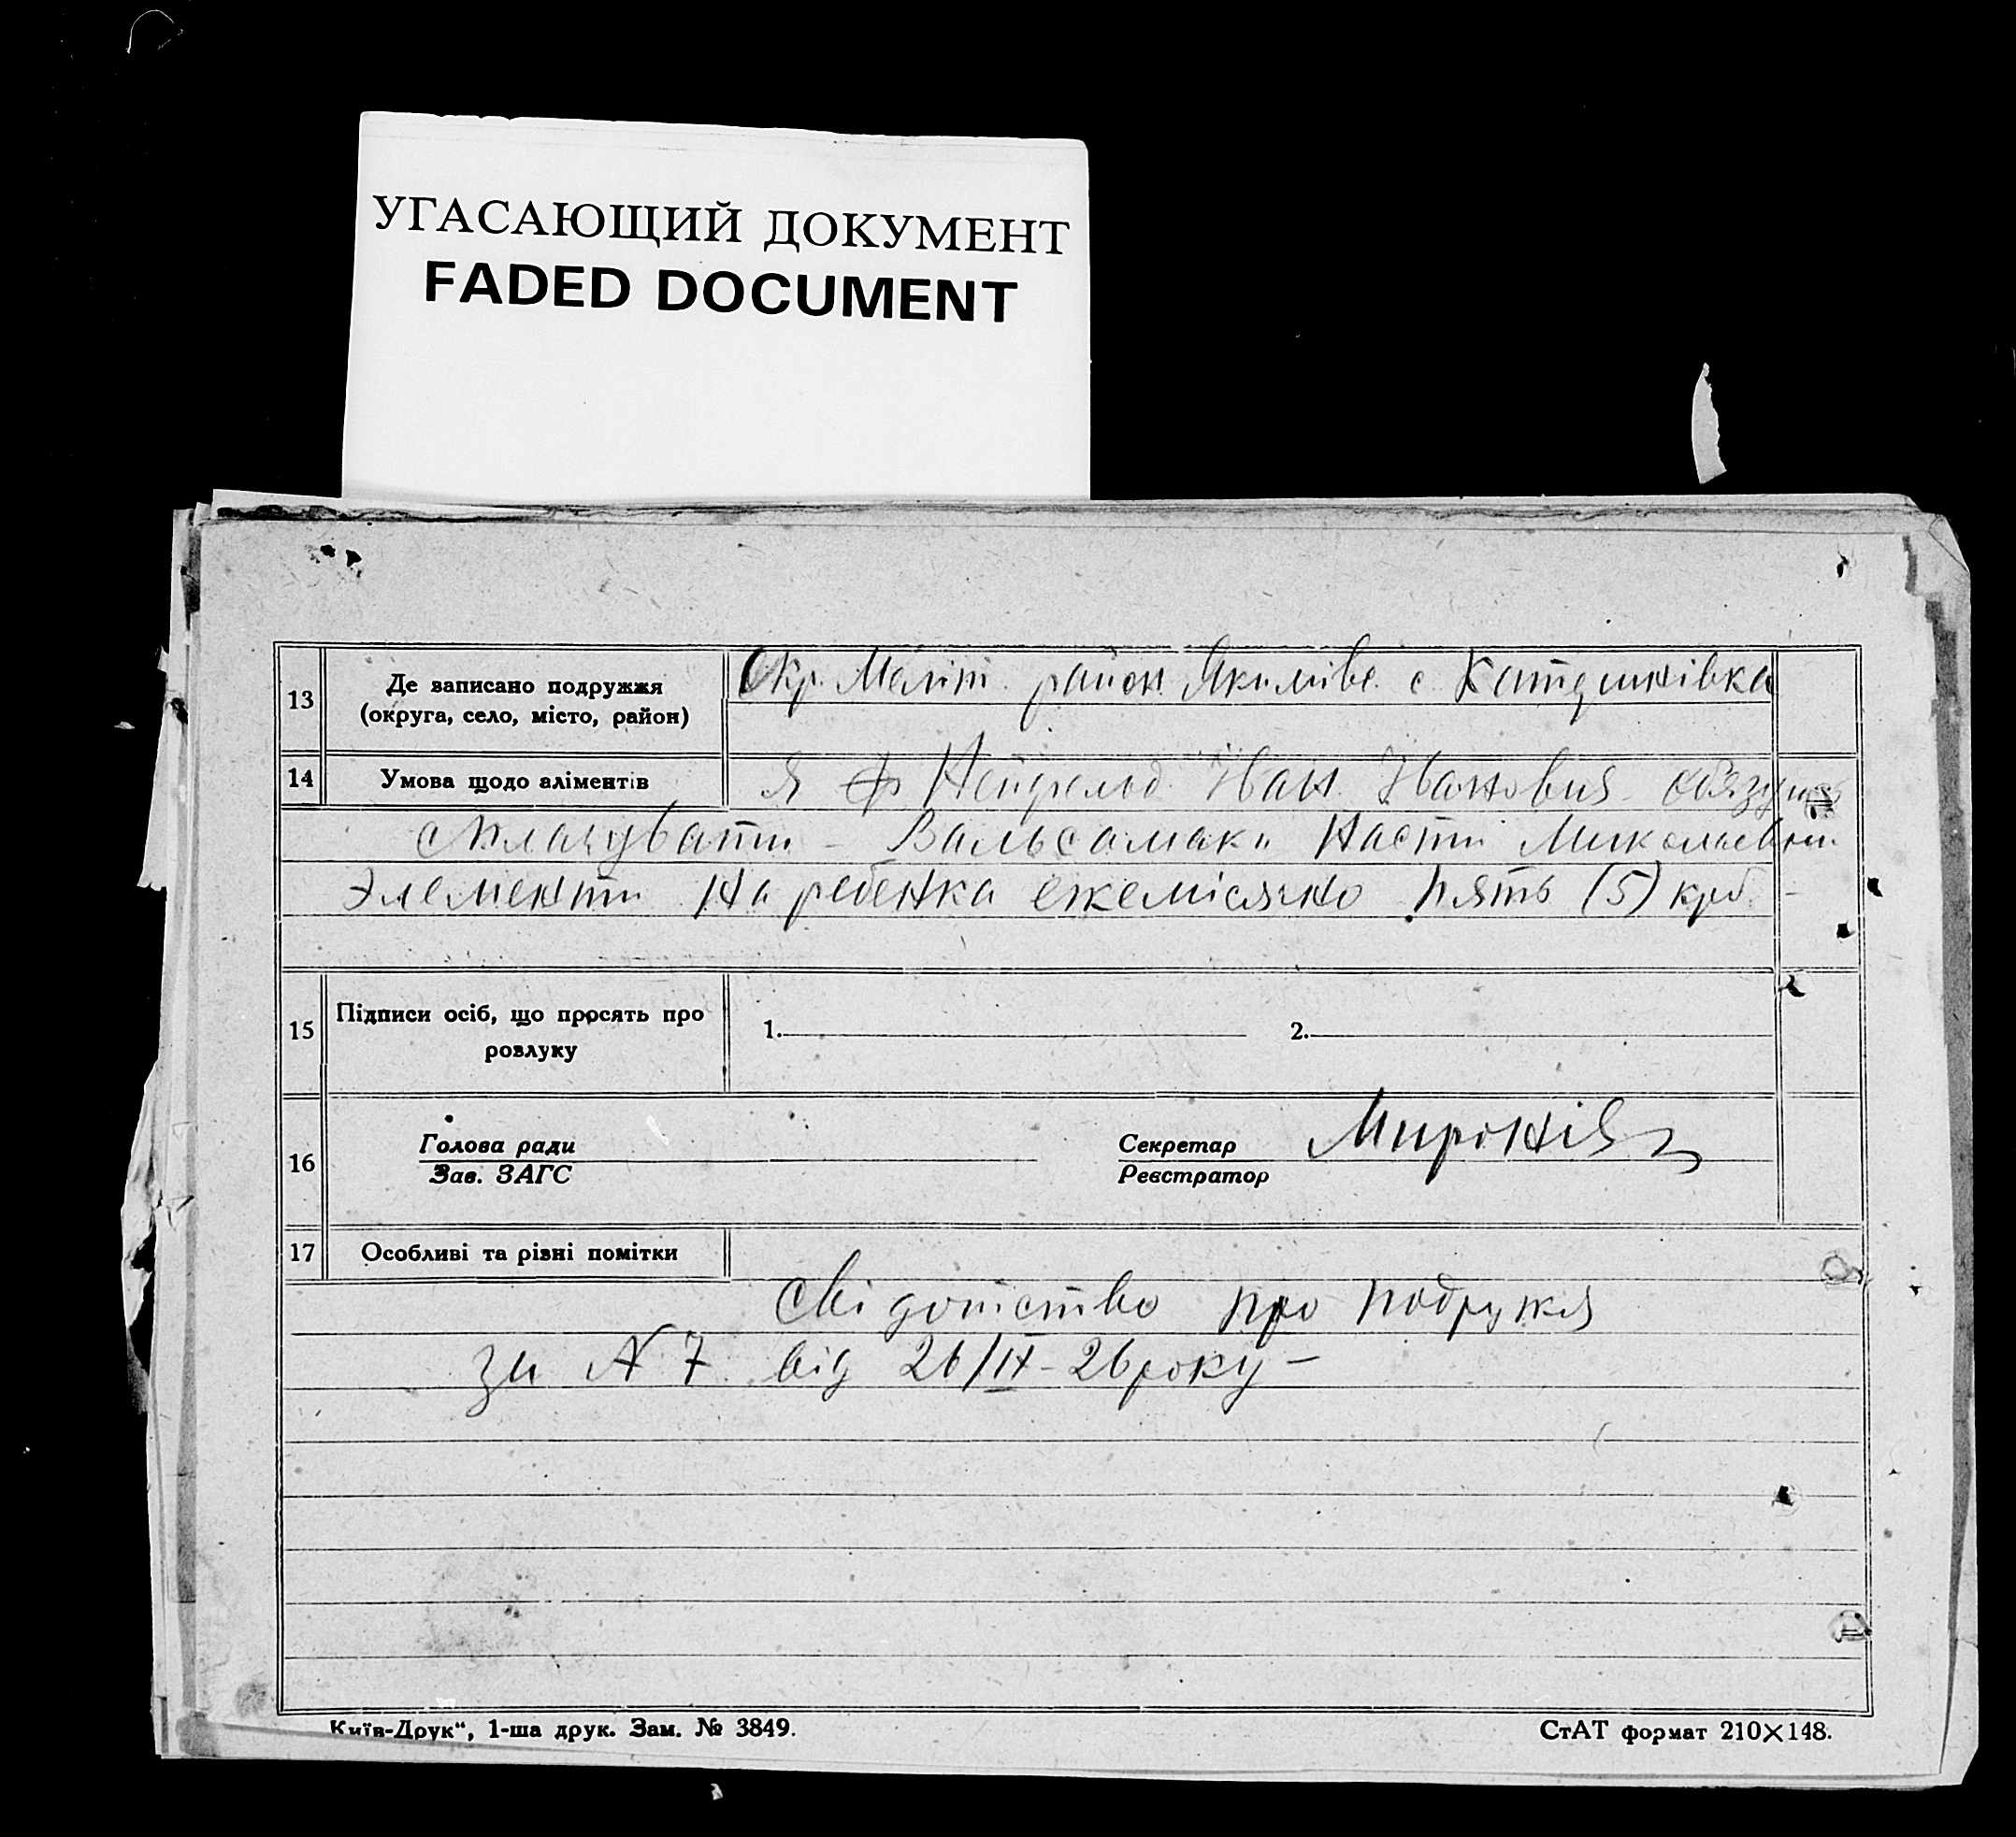 УГАСАЮЩИЙ ДОКУМЕНТ
FADED DOCUMENT
13
Де записано подружжя
(округа, село, місто, район)
Окр. Меліт. район. Якимівс. с
14
Умова щодо аліментів
Я Нейфельд Иван Ивановия обязуюсь
сплачувати – Вальсамаки Насти Миколаевни
Элементи на ребенка ежемісячно пять (5) крб. –
15
Підписи осіб, що просять про
розлуку
1.
2.
16
Голова ради
Зав. ЗАГС
Секретар
Реєстратор
Миронів
17
Особливі та різні помітки
Свідотство про подружя
за N 7 від 26/IX – 26 року –
Київ-Друк“, 1-ша друк. Зам. № 3849.
СтАТ формат 210×148.